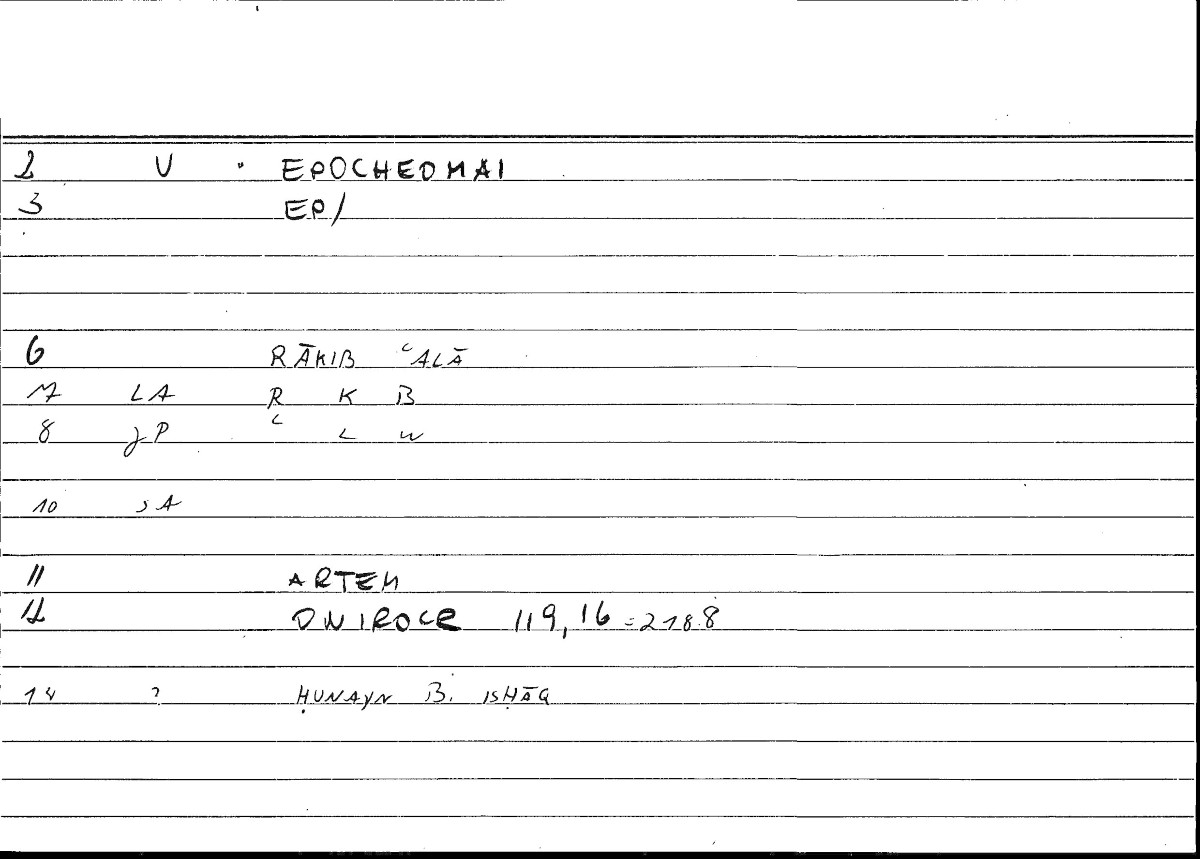 2 V · EPOCHEOMAI
3 EP/
6 RĀKIB ʿALĀ
7 LA R K B
8 JP ʿ L W
10 SA
11 ARTEM
12 ONIROCR 119,16 = 218.8
14 ? ḤUNAYN B. ISḤĀQ